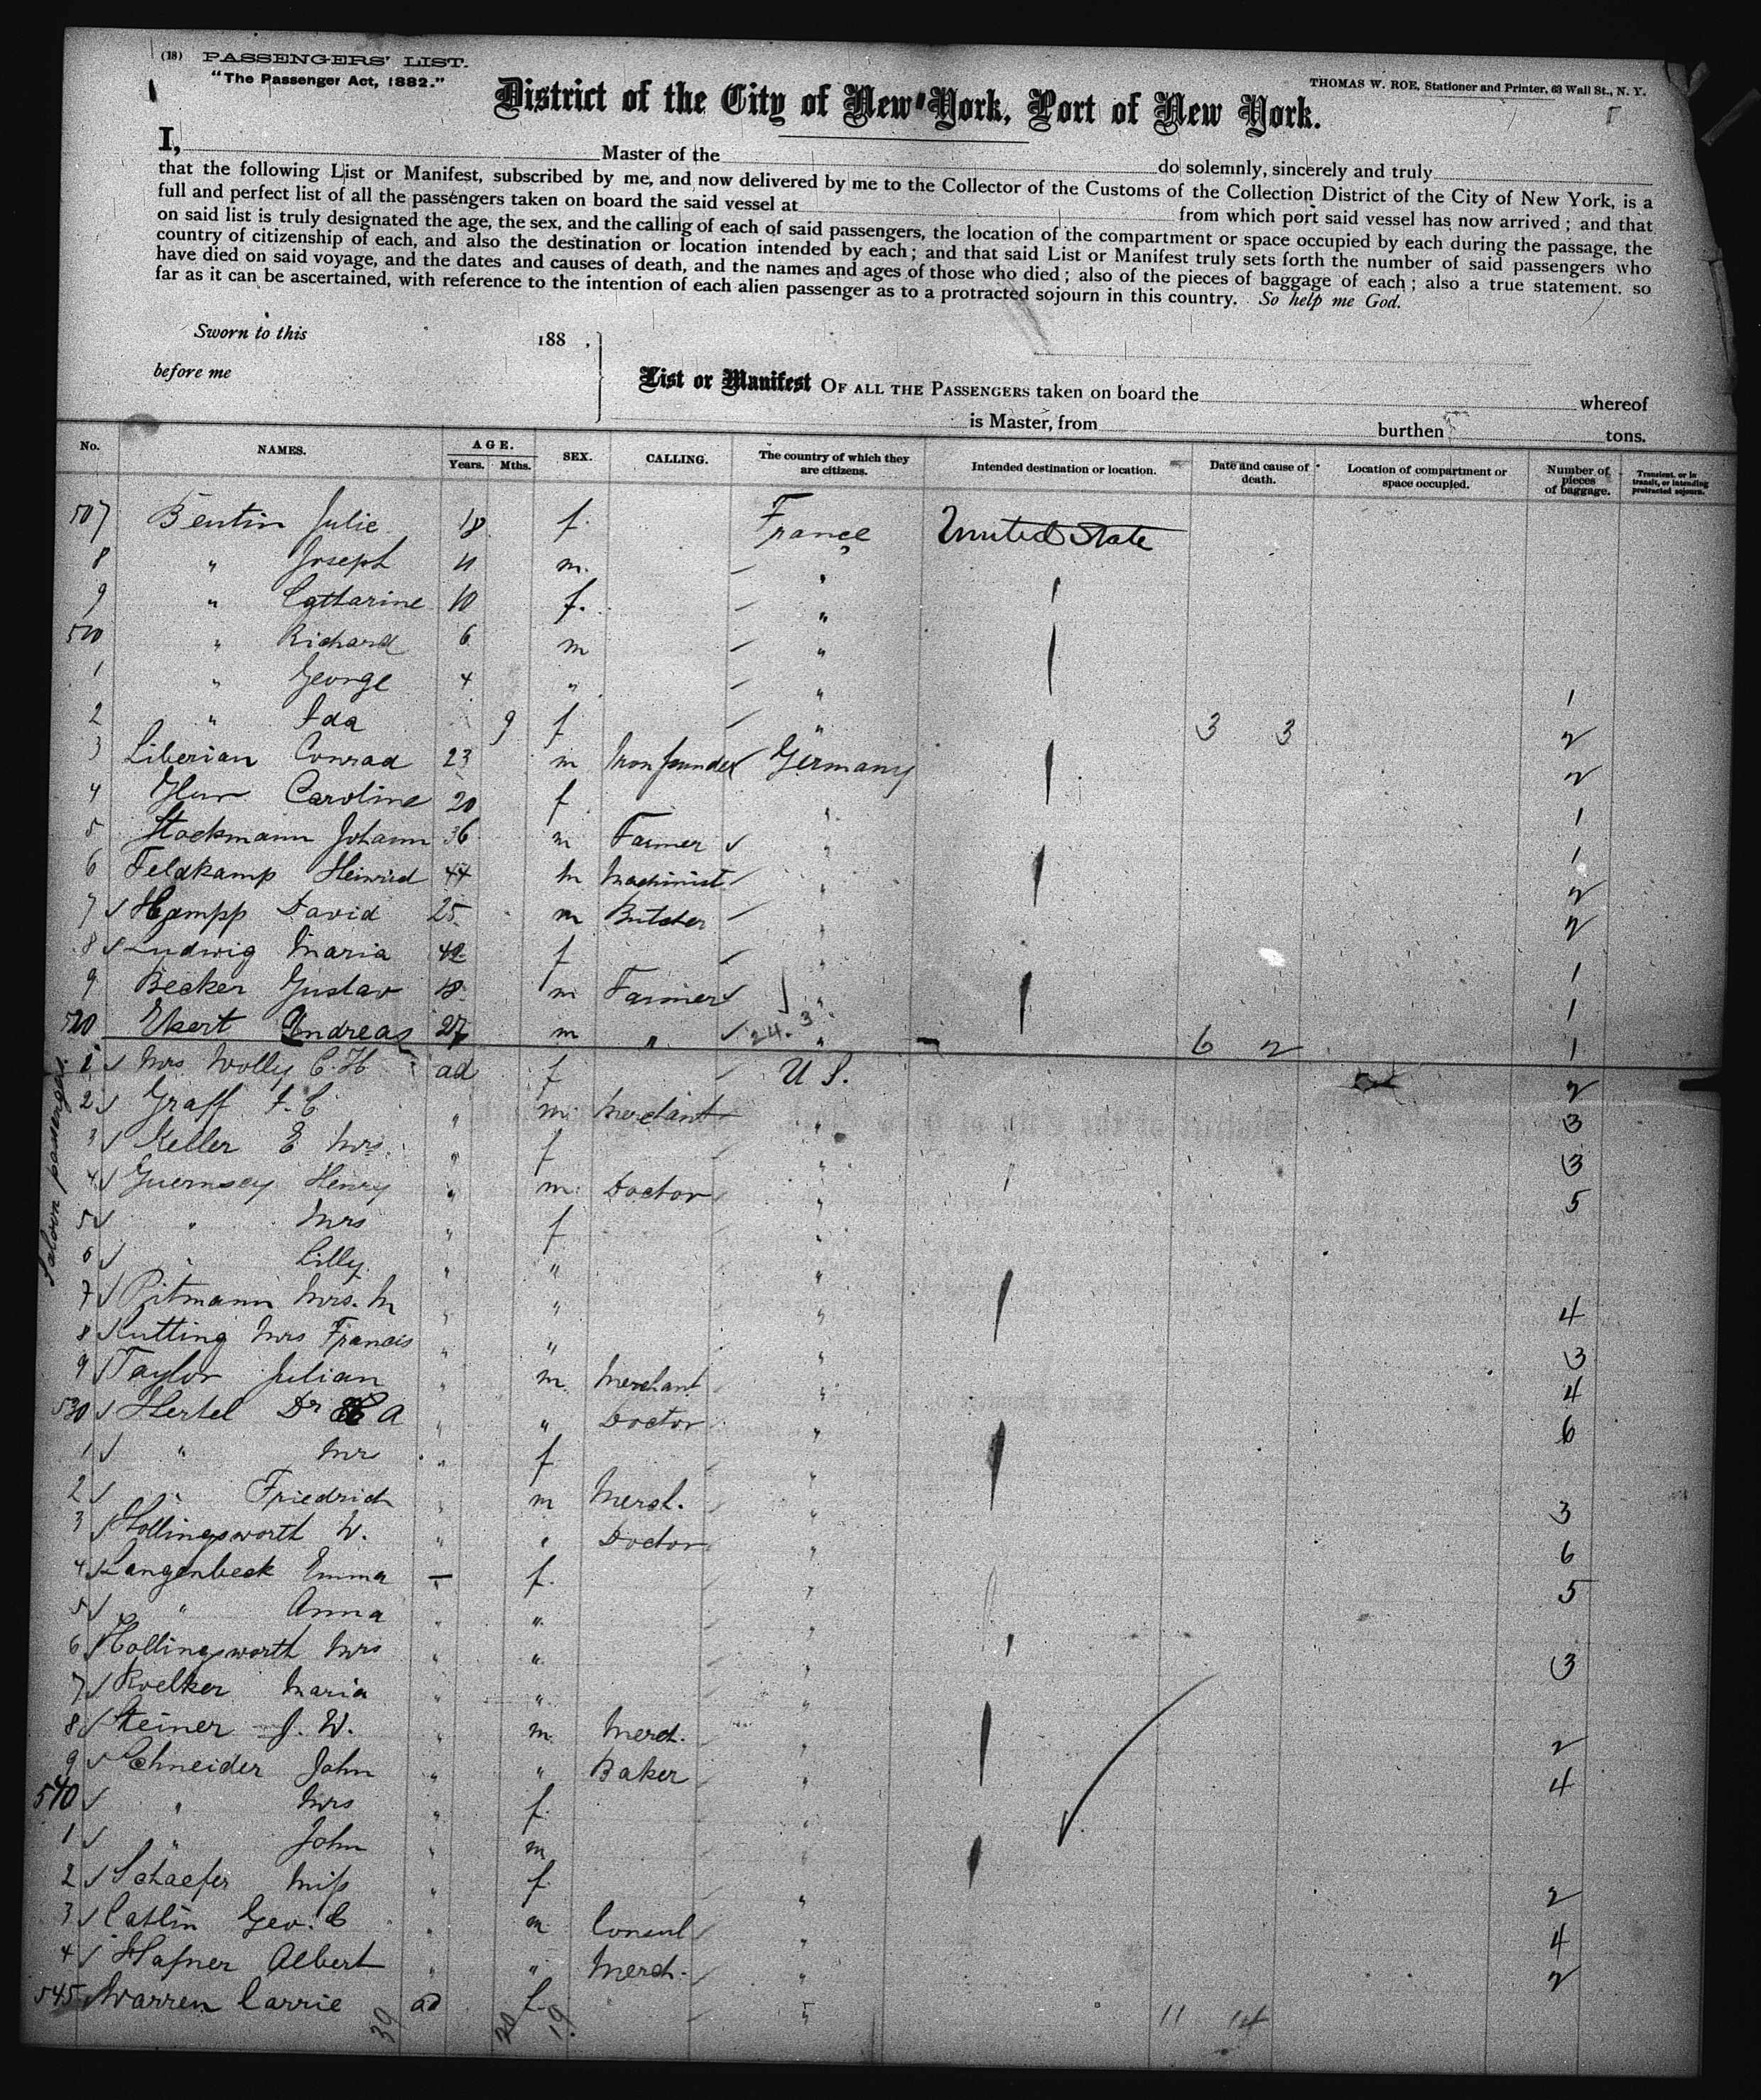 (18) PASSENGERS' LIST.
"The Passenger Act, 1882."
THOMAS W. ROE, Stationer and Printer, 63 Wall St., N. Y.
District of the City of New York, Port of New York.
I, Master of the do solemnly, sincerely and truly
that the following List or Manifest, subscribed by me, and now delivered by me to the Collector of the Customs of the Collection District of the City of New York, is a
full and perfect list of all the passengers taken on board the said vessel at from which port said vessel has now arrived; and that
on said list is truly designated the age, the sex, and the calling of each of said passengers, the location of the compartment or space occupied by each during the passage, the
country of citizenship of each, and also the destination or location intended by each; and that said List or Manifest truly sets forth the number of said passengers who
have died on said voyage, and the dates and causes of death, and the names and ages of those who died; also of the pieces of baggage of each; also a true statement. so
far as it can be ascertained, with reference to the intention of each alien passenger as to a protracted sojourn in this country. So help me God.
Sworn to this 188 .
before me
List or Manifest OF ALL THE PASSENGERS taken on board the whereof
is Master, from burthen tons.
No. NAMES. AGE. Years. Mths. SEX. CALLING. The country of which they are citizens. Intended destination or location. Date and cause of death. Location of compartment or space occupied. Number of pieces of baggage. Transient, or in transit, or intending protracted sojourn.
507 Bentin Julie 18 f. France United State
8 " Joseph 11 m. "
9 " Catharine 10 f. "
510 " Richard 6 m "
1 " George 4 " " 1
2 " Ida 9 f " 3 3 2
3 Liberian Conrad 23 m Iron founder Germany 2
4 Caroline 20 f " 1
5 Stockmann Johann 36 m Farmer " 1
6 Feldkamp Heinrich 44 m Machinist " 2
7 Hampp David 25 m Butcher " 2
8 Ludwig Maria 42 f "
9 Becker Gustav 18 m Farmer " 1
520 Ekert Andreas 27 m " 24. 3 " 6 2 1
Saloon passenger.
1 Mrs Wolly C. H ad f U S. 2
2 Graff F. C. " m. Merchant " 3
3 Keller E Mrs. " f " 3
4 Guernsey Henry " m. Doctor " 5
5 " Mrs " f "
6 " Lilly " " "
7 Pitmann Mrs. M " " " 4
8 Kutting Mrs Francis " " " 3
9 Taylor Julian " m. Merchant " 4
530 Hertel Dr A " " Doctor " 6
1 " Mrs " f "
2 " Friedrich " m Merch. " 3
3 Hollingsworth W. " " Doctor " 6
4 Langenbeck Emma " f. " 5
5 " Anna " " "
6 Hollingsworth Mrs " " " 3
7 Roelker Maria " " "
8 Steiner J. W. " m. Merch. " 2
9 Schneider John " " Baker " 4
540 " Mrs " f. "
1 " John " m "
2 Schaefer Miss " f. " 2
3 Catlin Geo. C " m Consul " 4
4 Hafner Albert " " Merch. " 2
545 Warren Carrie ad f. "
39 20 19. 11 14